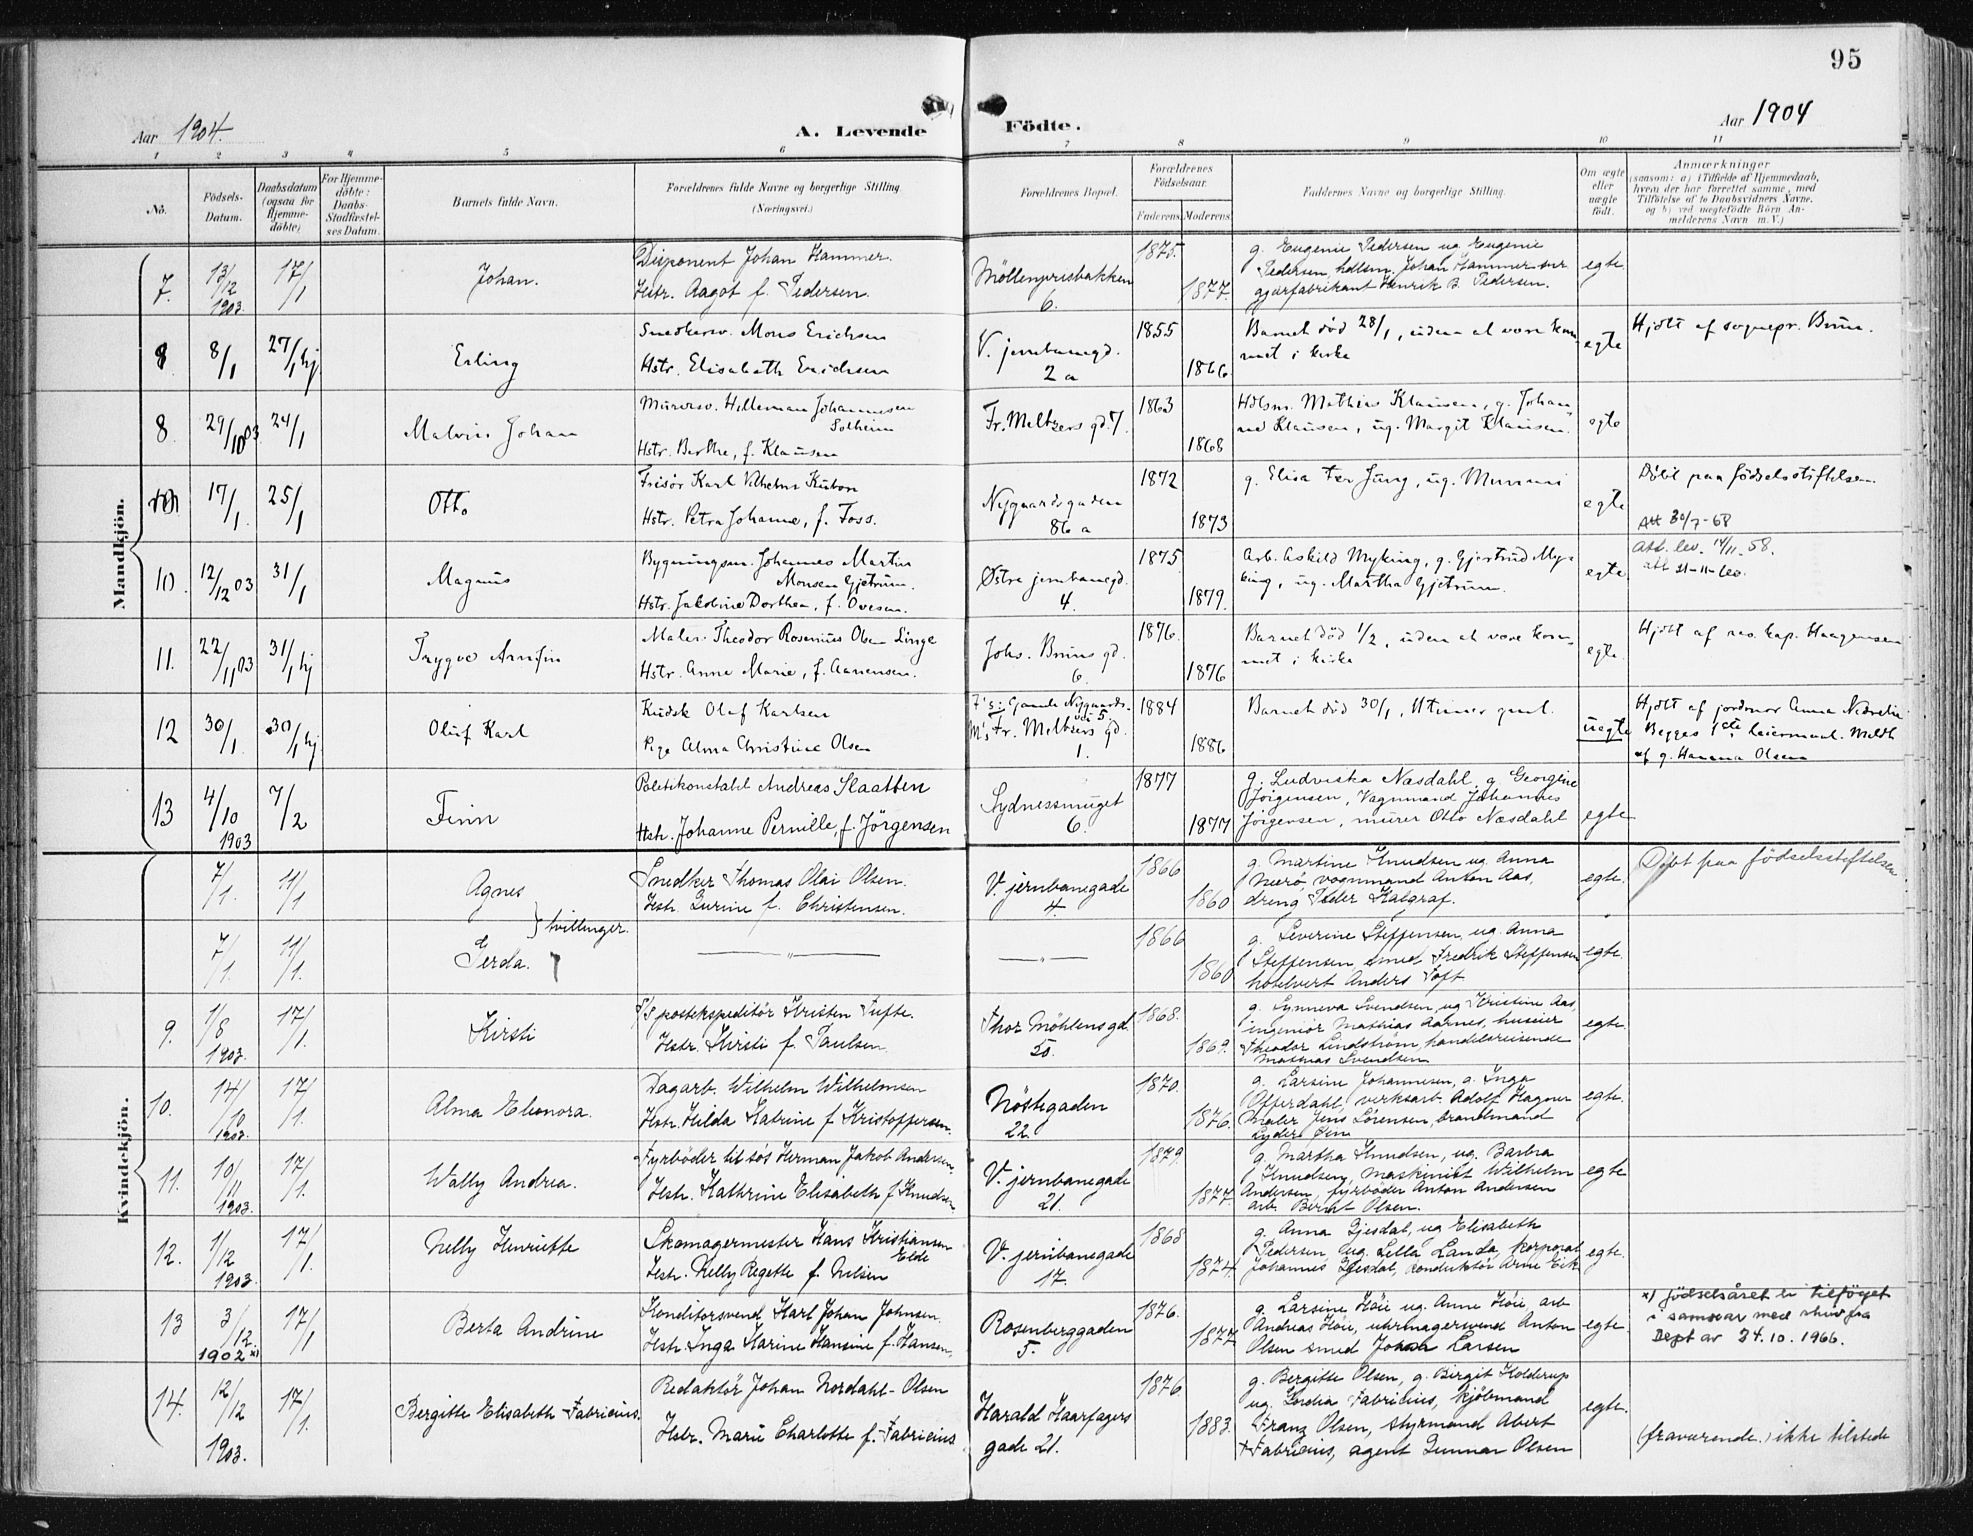 95
Aar 1904.
A. Levende Födte.
Aar 1904
1 2 3 4 5 6 7 8 9 10 11
No.
Födsels-Datum.
Daabsdatum (ogsaa for Hjemme-döbte)
For Hjemme-döbte: Daabs-Stadfæstel-ses Datum.
Barnets fulde Navn.
Forældrenes fulde Navne og borgerlige Stilling
(Næringsvei.)
Forældrenes Bopæl.
Forældrenes Födselsaar.
Faderens Moderens
Faddernes Navne og borgerlige Stilling.
Om ægte eller uægte födt.
Anmærkninger
(saasom: a) i Tilfælde af Hjemmedaab,
hvem der har forrettet samme, med
Tilföielse af to Daabsvidners Navne.
og b) ved uægtefödte Börn An-
melderens Navn m.V.)
Mandkjön.
7. 13/12 1903 17/1 Johan.
Disponent Johan Hammer.
Hstr. Aagot f. Pedersen.
Möllenprisbakken 6.
1875. 1877.
g. Eugenie Pedersen ug. Eugenie
Pedersen, hdlsm. Johan Hammer snr
gjærfabrikant Henrik B. Pedersen.
egte
8 8/1 27/1 hj Erling
Snedkersv. Mons Erichsen
Hstr. Elisabeth Erichsen
V. jernbanegd. 2 a
1855 1866
Barnet död 28/1, uden at være kom
met i kirke
egte
Hjdt af sognepr. Brun.
8. 29/10 03 24/1 Malvin Johan
Murersv. Hilleman Johannesen
Solheim
Hstr. Berthe, f. Klausen
Fr. Meltzers gd 7.
1863 1868
Hdlsm. Mathias Klausen, g. Johan
ne Klausen, ug. Margit Klausen.
egte
17/1. 25/1 Otto
Frisör Karl Vilhelm Kubon
Hstr. Petra Johanne, f. Foss.
Nygaardsgaden 86 a
1872 1873
g. Elisa Fer Jung, ug.
egte
Döbt paa födselsstiftelsen.
Att 30/7-68
10. 12/12 03 31/1 Magnus
Bygningsm. Johannes Martin
Monsen Gjetrum.
Hstr. Jakobine Dorthea, f. Ovesen.
Østre jernbanegd. 4.
1875 1879.
Arb. Askild Myking, g. Gjertrud My-
king, ug. Martha Gjetrum.
egte
Att. lev. 14/11-58.
att 21-11-60.
11. 22/11 03 31/1 hj Trygve Arnfin
Maler Theodor Rosenius Olsen Linge
Hstr. Anne Marie, f. Aanensen.
Johs. Bruns gd. 6.
1876. 1876
Barnet död 1/2, uden at være kom-
met i kirke
egte.
Hjdt af res. kap. Haagensen
12 30/1. 30/1 hj Oluf Karl
Kudsk Olaf Karlsen
Pige Alma Christine Olsen
F's: Gamle Nygaards-
vei 5.
M's Fr. Meltzers gd. 1.
1884 1886
Barnet död 30/1, 1 time gml.
uegte
Hjdt af jordmor Anna
Begges 1ste leiermaal. Meldt
af g. Hanna Olsen
13 4/10 1903 7/2 Finn
Politikonstabel Andreas Slaatten
Hstr. Johanne Pernille, f. Jörgensen
Sydnessmuget 6.
1877 1877
g. Ludviska Næsdahl, g. Georgine
Jörgensen, Vognmand Johannes
Jörgensen, murer Otto Næsdahl
egte
Kvindekjön.
7/1. 11/1 Agnes
} tvillinger.
Snedker Thomas Olai Olsen.
Hstr. Gurine f. Christensen.
V. jernbanegade 4.
1866 1860
g. Martine Knudsen ug. Anna
Nerö, vognmand Anton Aas,
dreng Peder Kalgraf.
egte.
Döbt paa födselsstiftelsen
7/1. 11/1. Gerda.
— " — — " —
1866 1860
g. Severine Steffensen, ug. Anna
Steffensen smed Fredrik Steffensen
hotelvert Anders Toft
egte.
9. 1/8 1903 17/1. Kirsti
S/S postekspeditör Kristen Tufte.
Hstr. Kirsti f. Paulsen
Thor Möhlens gd. 50.
1868. 1869.
g. Synneva Svendsen, ug Kristine Aas,
ingeniör Mathias Aarnes, huseier
Theodor Lindström, handelsreisende
Mathias Svendsen
egte.
10. 14/10 1903. 17/1. Alma Eleonora.
Dagarb. Wilhelm Wilhelmsen
Hstr. Hilda Katrine f Kristoffersen.
Nöstegaden 22.
1870. 1876.
g. Larsine Johannesen, g. Inga
Offerdahl, verksarb. Adolf Hagner
maler Jens Sörensen, brandmand
Lyder Öen
egte.
11. 10/11 1903. 17/1. Wally Andrea.
Fyrböder til søs Herman Jakob Andersen.
Hstr. Kathrine Elisabeth f Knudsen
V. jernbanegade 21.
1879. 1877.
g. Martha Knudsen, ug. Barbra
Knudsen, maskinist Wilhelm
Andersen, fyrböder Anton Andersen
arb. Bernt Olsen.
egte
12. 1/12 1903. 17/1. Nelly Henriette
Skomagermester Hans Kristiansen
Elde
Hstr. Nelly Regette f. Nilsen
V. jernbanegade 17.
1868 1874.
g. Anna Gjesdal, ug Elisabeth
Pedersen, ug. Lella Landa, korporal
Johannes Gjesdal, konduktör Arne Eik
egte.
13 3/12. 1902 x) 17/1 Berta Andrine
Konditorsvend Karl Johan Johnsen.
Hstr. Inga Karine Hansine f. Hansen.
Rosenberggaden 5.
1876. 1877
g. Larsine Höie ug. Anne Höie arb
Andreas Höie, uhrmagersvend Anton
Olsen smed Johan Larsen
egte.
x) födselsåret er tilföyet
i samsvar med skriv fra
Dept av 24.10.1966.
14. 12/12 1903. 17/1. Bergitte Elisabeth Fabricius.
Redaktör Johan Nordahl-Olsen
Hstr. Marie Charlotte f. Fabricius
Harald Haarfagers gade 21.
1876. 1883.
g. Bergitte Olsen, g. Birgit Holderup
ug. Fabricius, kjöbmand
Franz Olsen, styrmand Abert
Fabricius, agent Gunnar Olsen
egte.
(fraværende.) ikke tilstede